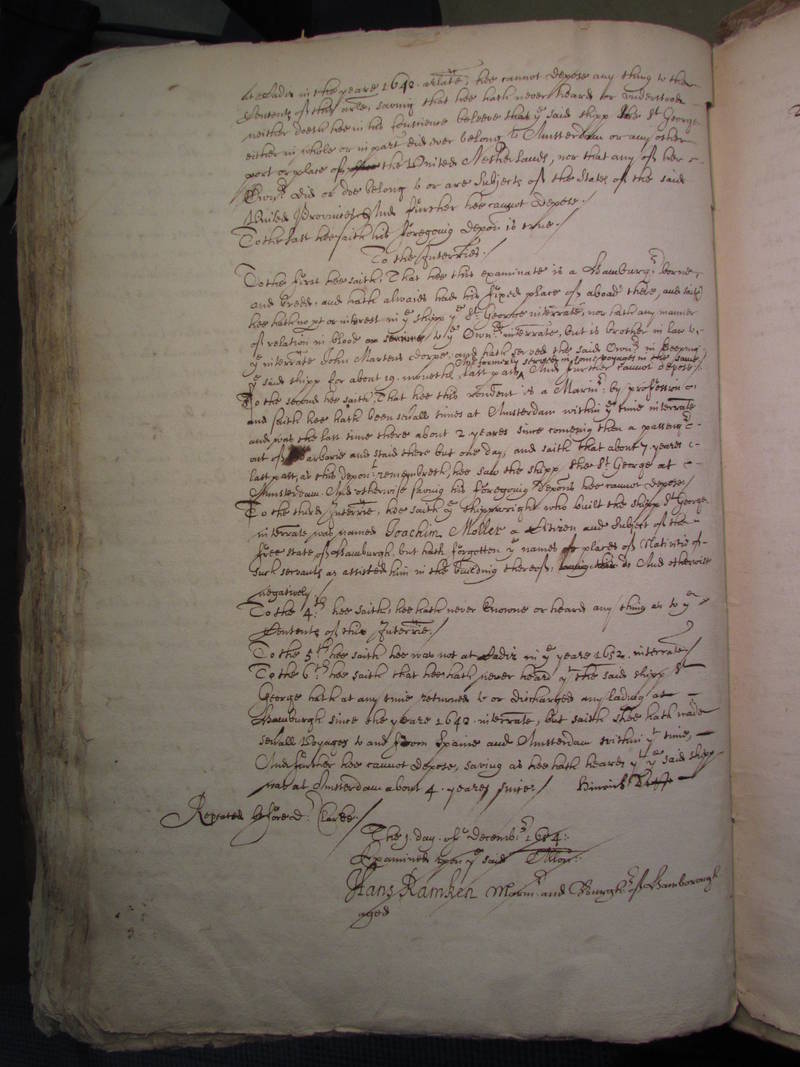 at Cadiz in the yeare 1642. arlate, hee cannot depose any thing to the
Contents of this arle, saving that hee hath never heard or understood
neither doeth hee in his Conscience beleeve that ye said shipp the St. George
either in whole or in part did ever belong to Amsterdam or any other
port or place of the United Netherlands, nor that any of her
Ownrs did or doe belong to or are Subjects of the States of the said
United Provinces And further hee cannot depose./
To the last hee saith his foregoing depon is true./
To the Interries./
To the first hee saith, That hee this examinate is a Hamburgr. borne
and breed, and hath alwaies had his fixed place of aboad there, and saith
hee hath no pt or interest in ye shipp ye St. George interrate, nor hath any manner
of relation in blood or to ye Ownrs interrate, but is brother in law to
ye interrate John Martens dorpe, and hath served the said Ownrs in keeping
hee formerly served in some voyages in the same
ye said shipp for about 19. moneths last past, And further cannot depose./
To the second hee saith, That hee this rendent is a Marinr. by profession
and saith hee hath been severall times at Amsterdam within ye time interrate
and was the last time there about 2 yeares since comeing then a passengr.
out of Barbarie and staid there but one day, and saith that about 7. yeares
last past, as this deponrt remembreth, hee saw the shipp the St. George at
Amsterdam. And otherwise saving his foregoing deposn hee cannot depose/
To the third Interrie, hee saith ye shippwright who built the shipp St. George
interrate, was named Joachim Moller a Citizen and Subject of the
free state of Hamburgh, but hath forgotten ye names or places of Nativitie of
such servants as assisted him in the building thereof, And otherwise
negatively./
To the 4.th hee saith, hee hath never knowne or heard any thing as to ye
Contents of this Interrie./
To the 5th hee saith hee was not at Cadiz in ye yeare 1652. interrate/
To the 6.th hee saith that hee hath never heard yt the said shipp St
George hath at any time returned to or discharged any lading at
Hamburgh since the yeare 1642 interrate, but saith shee hath made
severall Voyages to and from Spaine and Amsterdam within yt time,
And further hee cannot depose, saving as hee hath heard, yt ye said shipp
was at Amsterdam about 4. yeares since./ Hinrich
Repeated before dr. Clarke./
The 1. day. of decembr. 1654:
Examined upon ye said Allon:
Hans Ramken Marinr. and Burghr. of Hamborough
aged